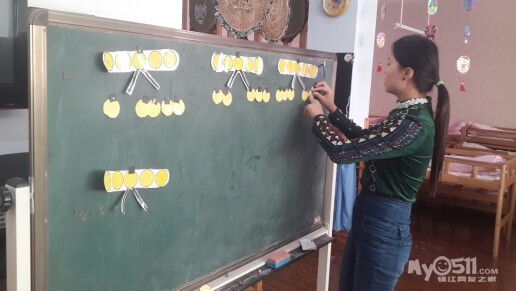 My0511.com
镇江网友之家